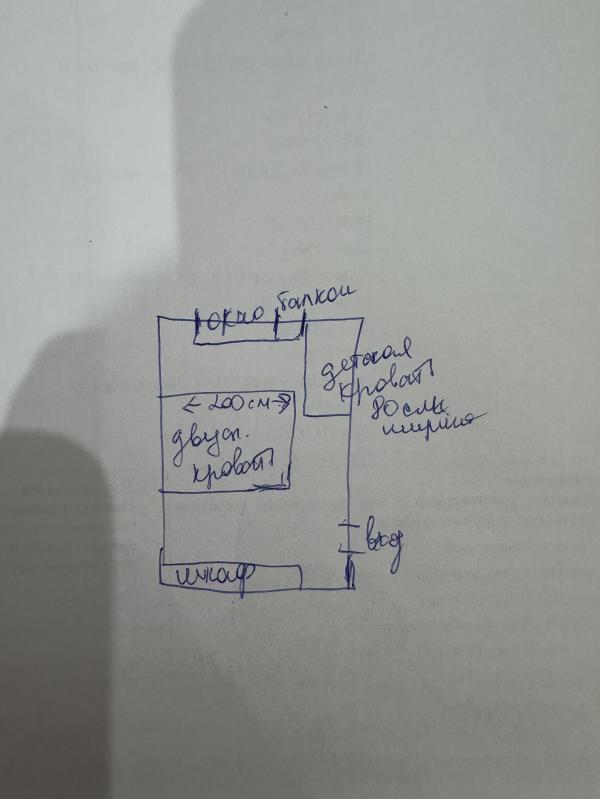 окно балкон
детская
кровать
80 см
ширина
← 200 см →
двусп.
кровать
вход
шкаф